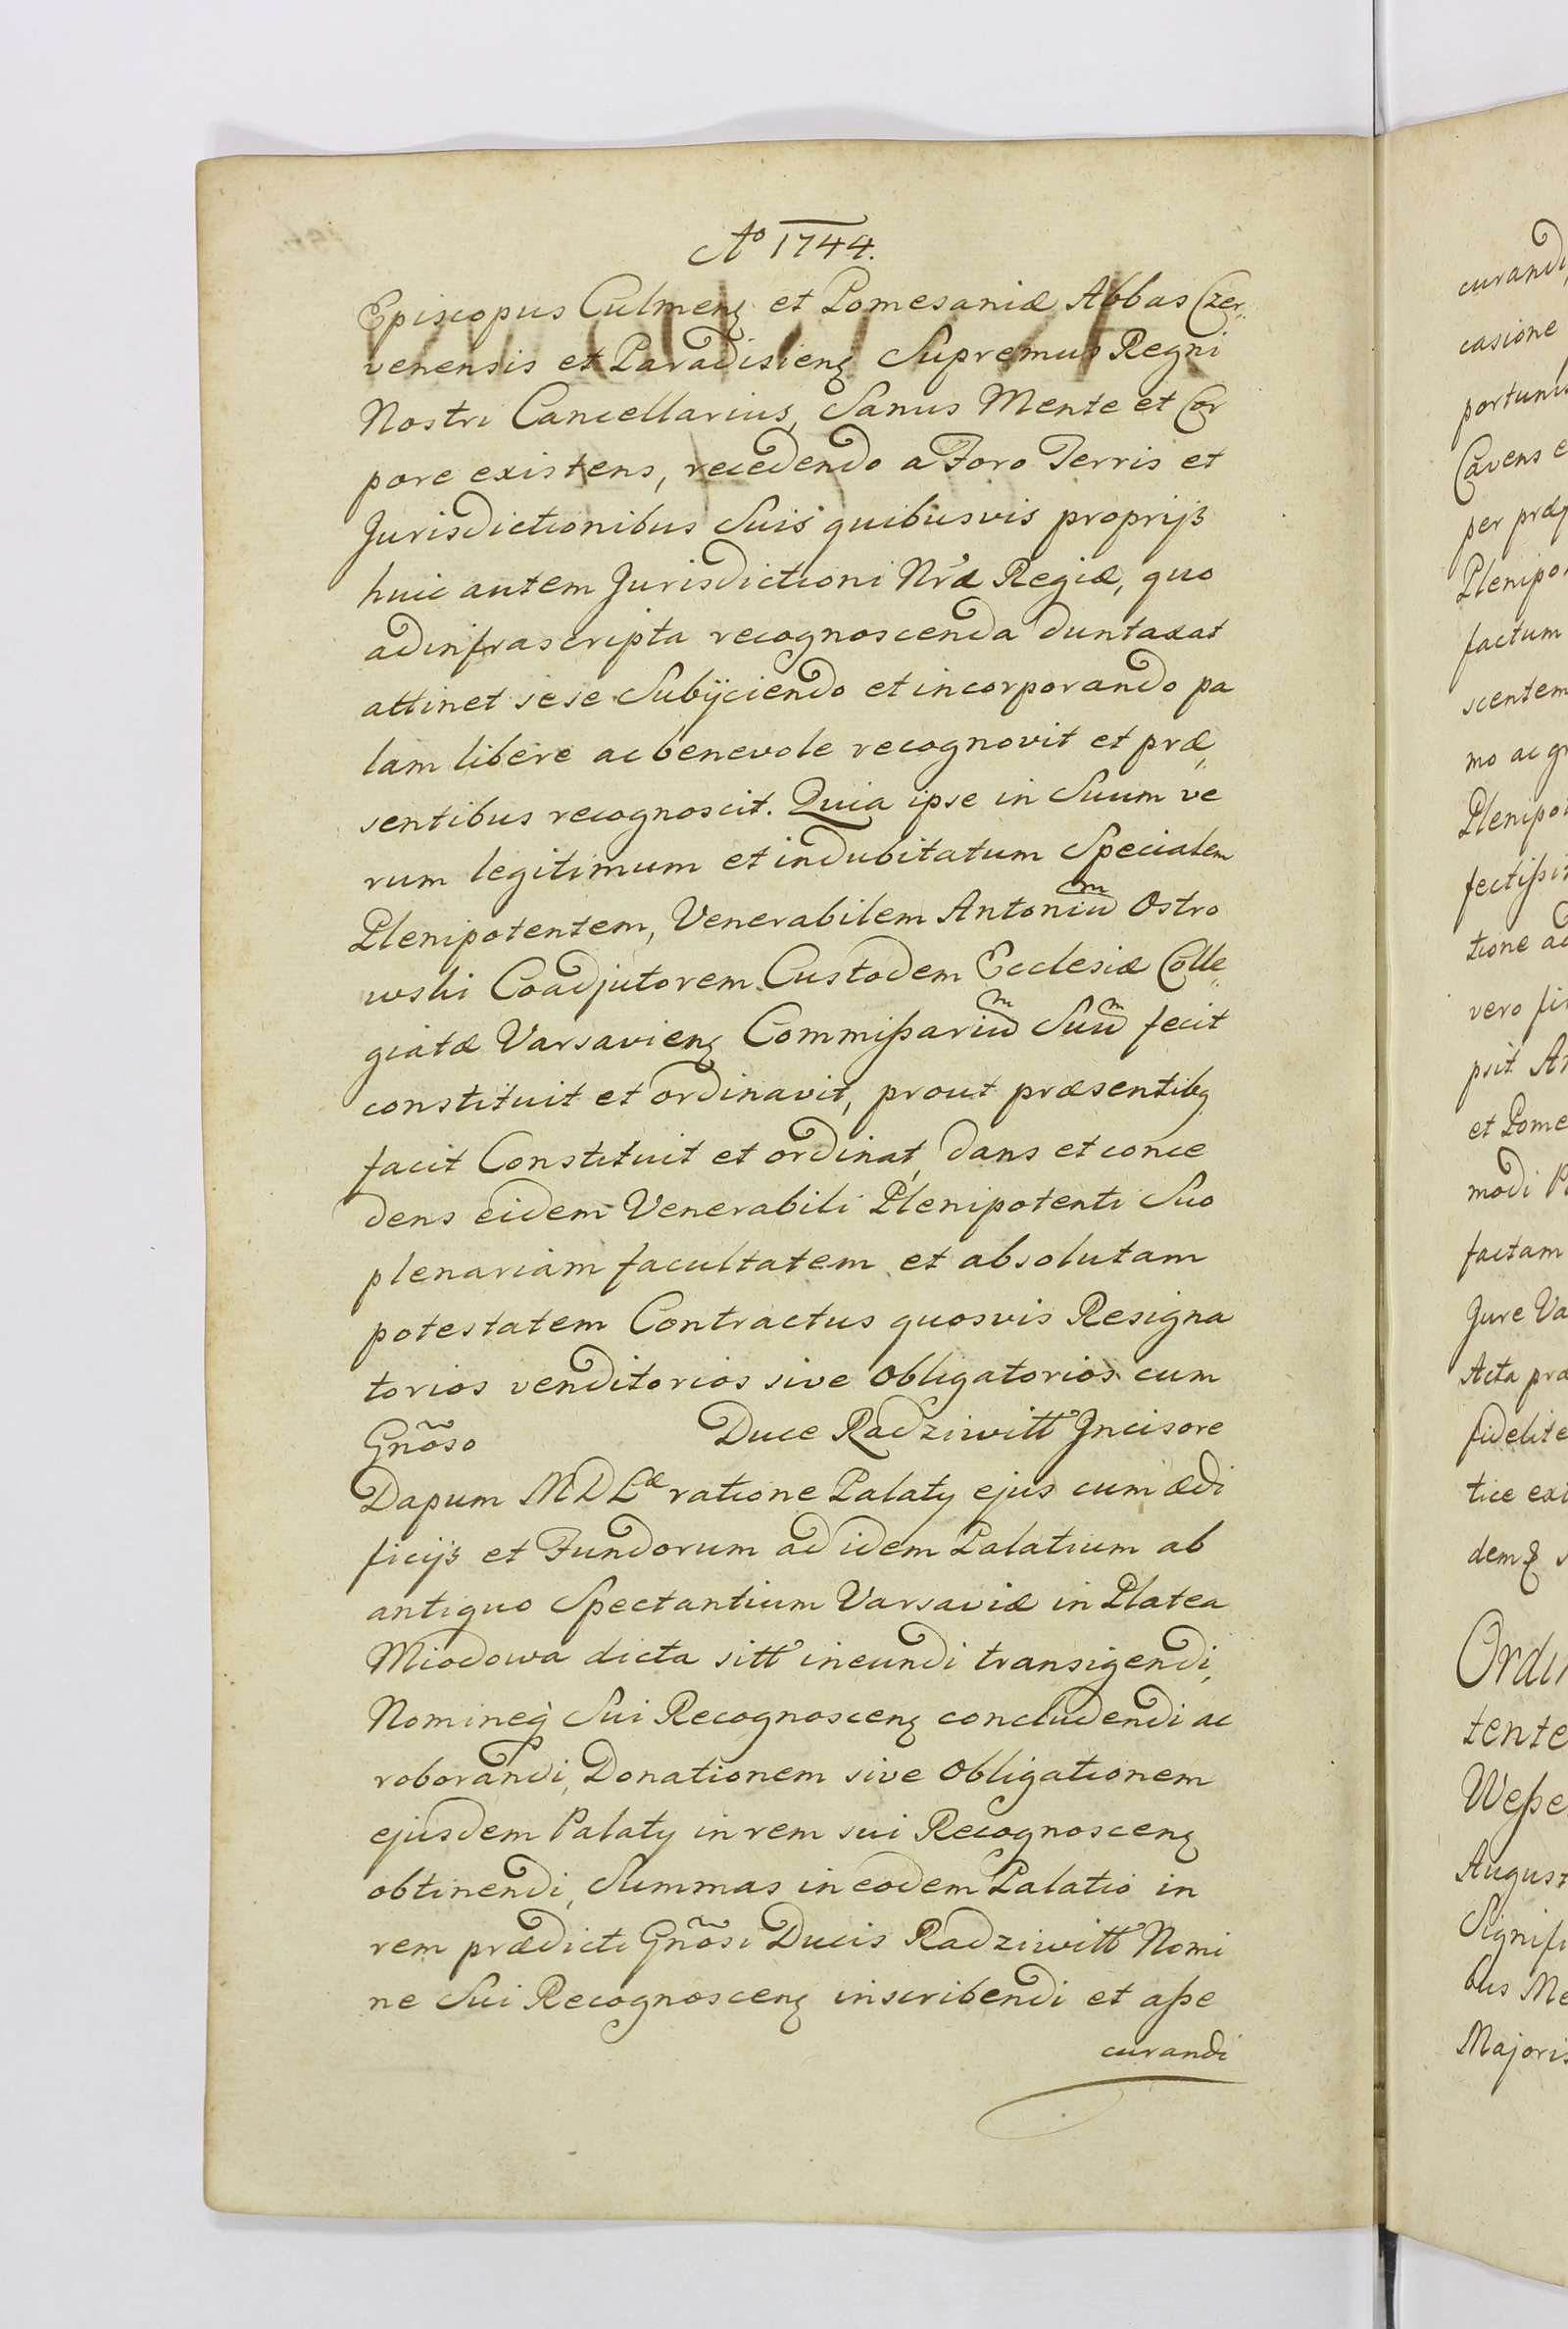 Ao 1744.
Episcopus Culmenę et Pomesaniæ Abbas Czer„
venensis et Paradisienę Supremus Regni
Nostri Cancellarius, Sanus Mente et Cor
pore existens, recedendo a Foro Terris et
Jurisdictionibus Suis quibusvis proprijs
huic autem Jurisdictioni Nræ Regiæ, quo
ad infrascripta recognoscenda duntaxat
attinet sese Subijciendo et incorporando pa
lam libere ac benevole recognovit et præ„
sentibus recognoscit. Quia ipse in Suum ve
rum legitimum et indubitatum Specialem
Plenipotentem, Venerabilem Antoniũm Ostro
wski Coadjutorem Custodem Ecclesiæ Colle„
giatæ Varsavienę Commißariũm Suũm fecit
constituit et ordinavit, prout præsentibę
facit Constituit et ordinat, dans et conce
dens eidem Venerabili Plenipotenti Suo
plenariam facultatem et absolutam
potestatem Contractus quosvis Resigna
torios venditorios sive obligatorios cum
Gnõso Duce Radziwiłł Jncisore
Dapum MDLæ ratione Palaty ejus cum ædi
ficijs et Fundorum ad idem Palatium ab
antiquo Spectantium Varsaviæ in Platea
Miodowa dicta sitt ineundi transigendi,
Nomineq̀ Sui Recognoscenę concludendi ac
roborandi, Donationem sive obligationem
ejusdem Palaty in rem sui Recognoscenę
obtinendi, Summas in eodem Palatio in
rem prædicti Gnõsi Ducis Radziwiłł Nomi
ne Sui Recognoscenę inscribendi et aße
curandi
curandi
casione
Cavens e
per præp
Plenipo
factum
scentem
mo ac g
Plenipo
tione ac
vero
psit A
et Pome
modi
factam
Jure Va
Acta præ
fidelite
tice
demq
Ordi
tente
Weße
August
Signifi
bus Me
Majoris